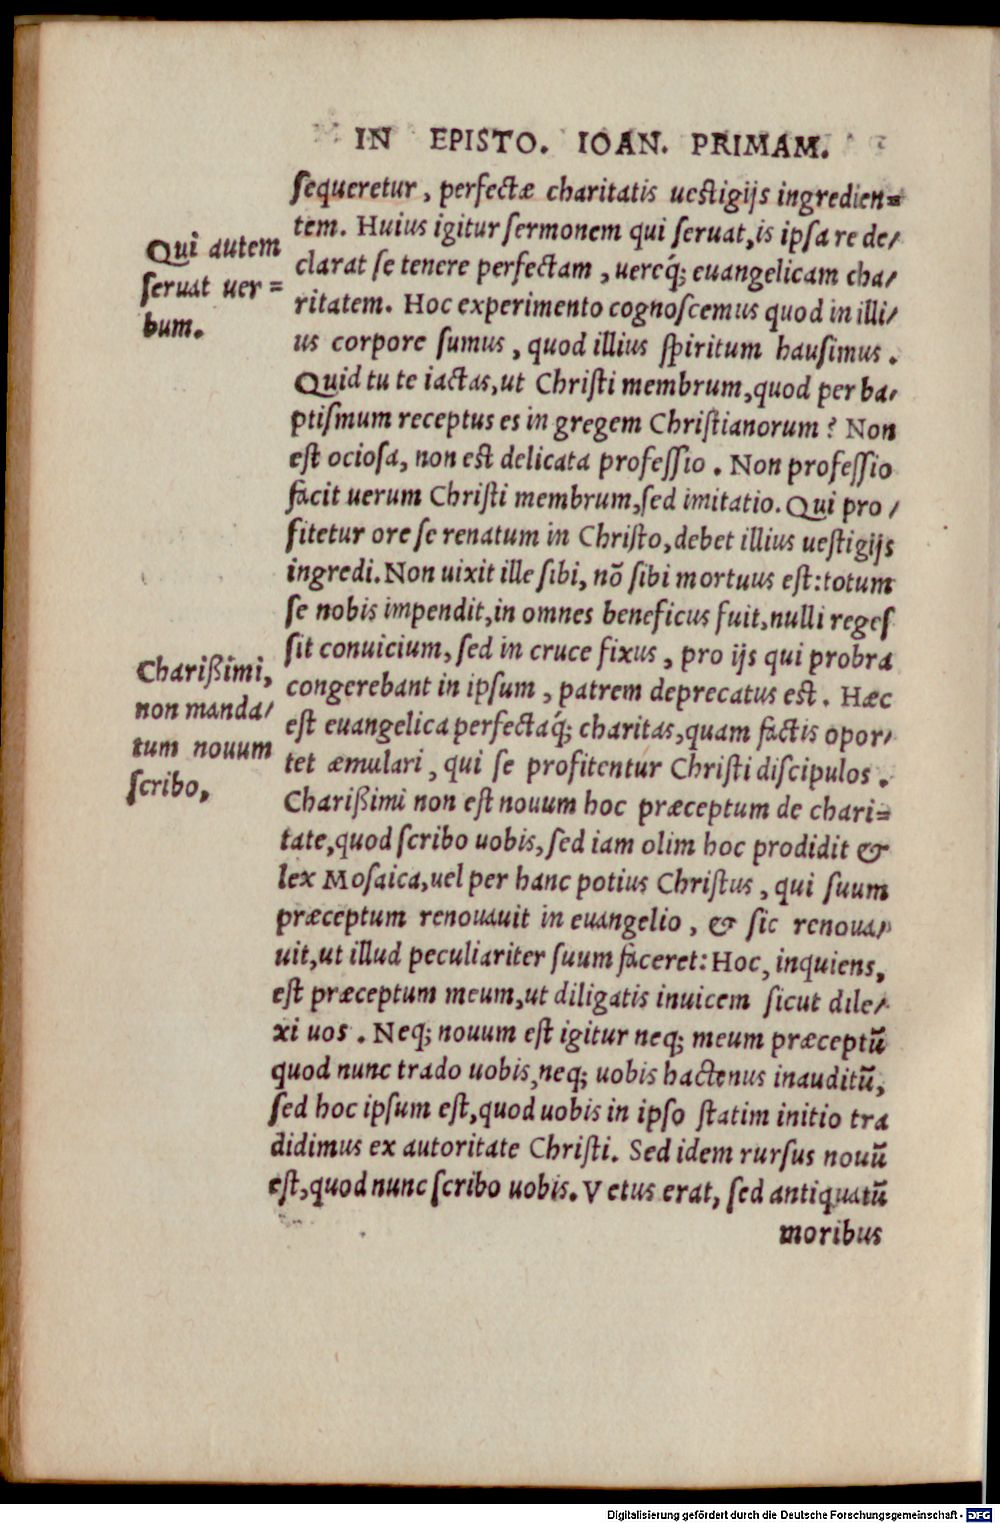 IN EPISTO. IOAN. PRIMAM.
sequeretur, perfectæ charitatis uestigijs ingredien=
tem. Huius igitur sermonem qui seruat, is ipsa re de/
clarat se tenere perfectam, uereq́; euangelicam cha/
ritatem. Hoc experimento cognoscemus quod in illi/
us corpore sumus, quod illius spiritum hausimus.
Quid tu te iactas, ut Christi membrum, quod per ba/
ptismum receptus es in gregem Christianorum? Non
est ociosa, non est delicata professio. Non professio
facit uerum Christi membrum, sed imitatio. Qui pro/
fitetur ore se renatum in Christo, debet illius uestigijs
ingredi. Non uixit ille sibi, nō sibi mortuus est: totum
se nobis impendit, in omnes beneficus fuit, nulli reges
sit conuicium, sed in cruce fixus, pro ijs qui probra
congerebant in ipsum, patrem deprecatus est. Hæc
est euangelica perfectaq́; charitas, quam factis opor/
tet æmulari, qui se profitentur Christi discipulos.
Charißimi non est nouum hoc præceptum de chari=
tate, quod scribo uobis, sed iam olim hoc prodidit &
lex Mosaica, uel per hanc potius Christus, qui suum
præceptum renouauit in euangelio, & sic renoua/
uit, ut illud peculiariter suum faceret: Hoc, inquiens,
est præceptum meum, ut diligatis inuicem sicut dile/
xi uos. Neq; nouum est igitur neq; meum præceptū
quod nunc trado uobis, neq; uobis hactenus inauditū,
sed hoc ipsum est, quod uobis in ipso statim initio tra
didimus ex autoritate Christi. Sed idem rursus nouū
est, quod nunc scribo uobis. Vetus erat, sed antiquatū
moribus
Qui autem
seruat uer=
bum.
Charißimi,
non manda/
tum nouum
scribo,
Digitalisierung gefördert durch die Deutsche Forschungsgemeinschaft - DFG